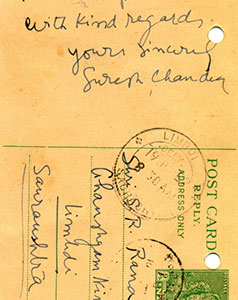 with Kind regards.
yours sincerely
Suresh Chandra
POST CARD
REPLY.
ADDRESS ONLY
LIMBDI
Shri S. R. Rana
Ghanshyam
Limbdi
Saurashtra